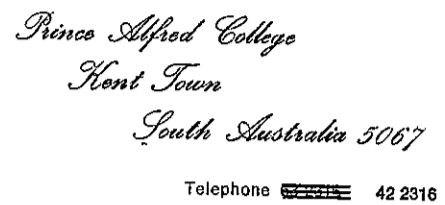 Prince Alfred College
Kent Town
South Australia 5067
Telephone 42 2316